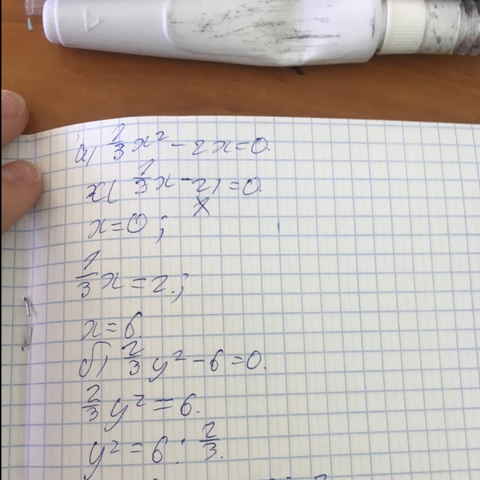 а) 1/3 x² - 2x = 0.
x( 1/3 x - 2) = 0.
x
x = 0 ;
1/3 x = 2.;
x = 6
б) 2/3 y² - 6 = 0.
2/3 y² = 6.
y² = 6 : 2/3.